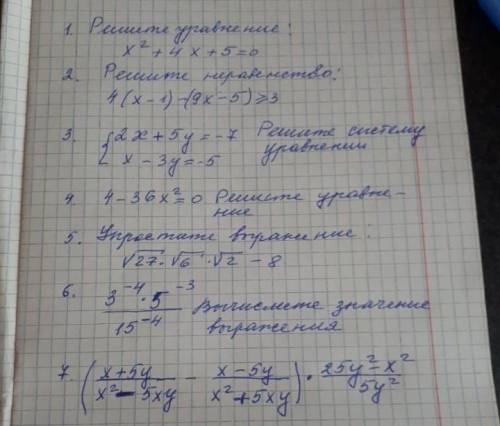 1. Решите уравнение:
x² + 4x + 5 = 0
2. Решите неравенство:
4(x-1) - (9x-5) ≥ 3
3. { 2x + 5y = -7 Решите систему
x - 3y = -5 уравнений
4. 4 - 36x² = 0 Решите уравне-
ние
5. Упростате выражение:
√27 · √6 · √2 - 8
6. (3⁻⁴ · 5⁻³)/(15⁻⁴) Вычислете значение
выражения
7. ((x+5y)/(x² - 5xy) - (x-5y)/(x² + 5xy)) · (25y² - x²)/(5y²)